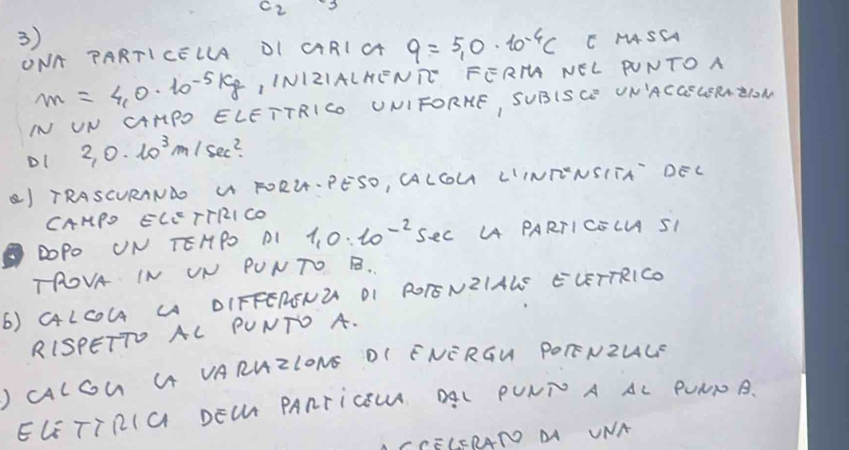 C2 3
3)
UNA PARTICELLA DI CARICA q = 5,0 · 10⁻⁴C E MASSA
m = 4,0 · 10⁻⁵ Kg, INIZIALMENTE FERMA NEL PUNTO A
IN UN CAMPO ELETTRICO UNIFORME, SUBISCE UN'ACCELERAZION
DI 2,0 · 10³ m/sec².
a) TRASCURANDO LA FORZA-PESO, CALCOLA L'INTENSITA' DEL
CAMPO ELETTRICO
DOPO UN TEMPO DI 1,0 · 10⁻² sec LA PARTICELLA SI
TROVA IN UN PUNTO B.
b) CALCOLA LA DIFFERENZA DI POTENZIALE ELETTRICO
RISPETTO AL PUNTO A.
) CALCOLA LA VARIAZIONE DI ENERGIA POTENZIALE
ELETTRICA DELLA PARTICELLA DAL PUNTO A AL PUNTO B.
ACCELERATO DA UNA